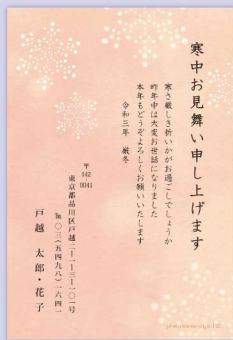 寒中お見舞い申し上げます
寒さ厳しき折いかがお過ごしでしょうか
昨年中は大変お世話になりました
本年もどうぞよろしくお願いいたします
令和三年　厳冬
〒142-0041
東京都品川区戸越二-一-三-一〇一号
℡〇三(五四九八)一六四一
戸越　太郎・花子